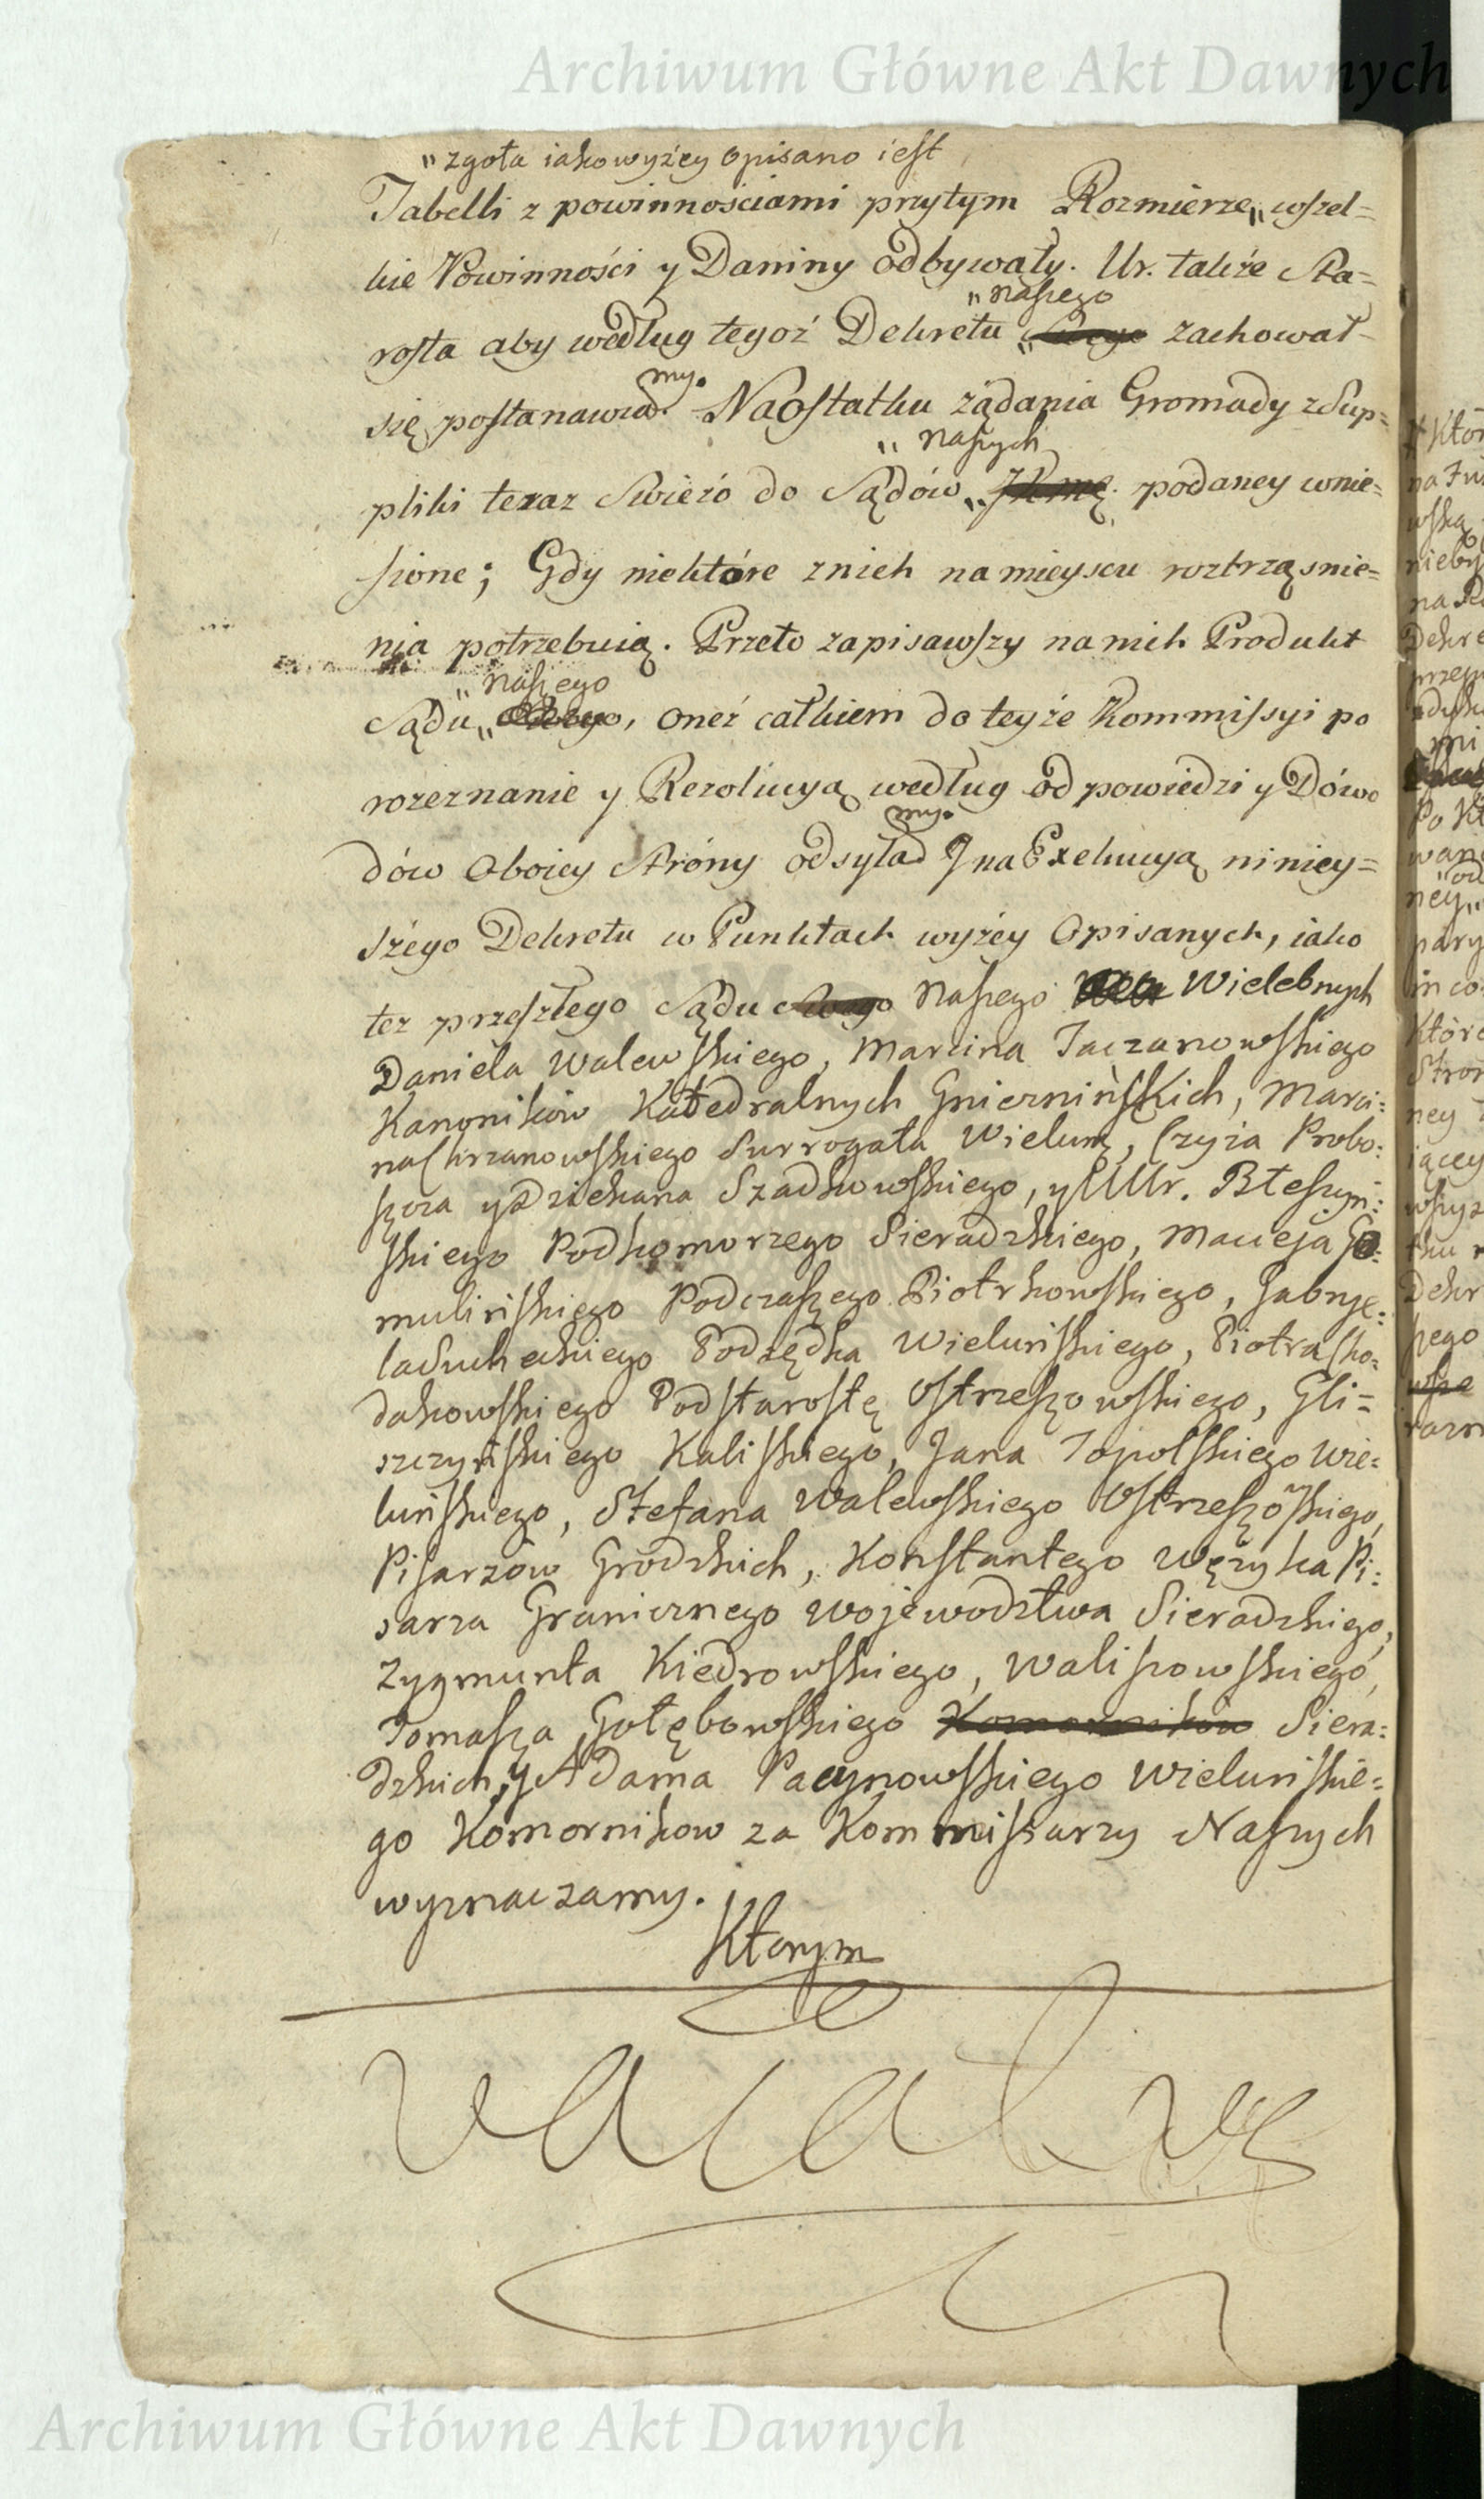 Archiwum Główne Akt Dawnych
" zgoła iako wyżey opisano iest
Tabelli z powinnościami przytym Rozmierze „ wszel=
kie Powinności y Daniny odbywały. Ur. także Sta=
" naszego
rosta aby według tegoż Dekretu „ zachował
my.
się postanawia. Naostatku żądania Gromady z Sup=
" naszych
pliki teraz swieżo do Sądów „ JKmę. podaney wnie=
sione; Gdy niektóre znich na mieyscu roztrząsnie=
nia potrzebuią. Przeto zapisawszy na nich Produkt
" naszego
Sądu „ , oneż całkiem do teyże Kommissyi po
rozeznanie y Rezolucyą według odpowiedzi y Dowo
my.
dów oboiey Stróny odsyład J na Exekucyą niniey=
szego Dekretu w Punktach wyżey opisanych, iako
też przeszłego Sądu swego Naszego Wielebnych
Daniela Walewskiego, Marcina Taczanowskiego
Kanoników Katedralnych Gnieznińskich, Marci:
na Chrzanowskiego Surrogata Wieluń, Czyża Probo:
szcza y Dziekana Szadkowskiego, y UUr. Błeszyń:
skiego Podkomorzego Sieradzkiego, Macieja Go:
mulińskiego Podczaszego Piotrkowskiego, Gabrye:
la Sucheckiego Podsędka Wieluńskiego, Piotra Sko:
dakowskiego Podstarostę Ostrzeszowskiego, Gli=
szczyńskiego Kaliskiego, Jana Topolskiego Wie:
luńskiego, Stefana Walewskiego Ostrzeszowskiego,
Pisarzów Grodzkich, Konstantego Wężyka Pi:
sarza Granicznego Wojewodztwa Sieradzkiego,
Zygmunta Kiedrowskiego, Waliszowskiego,
Tomasza Gołębowskiego Komorników Siera:
dzkich, y Adama Pacynowskiego Wieluńskie=
go Komornikow za Kommissarzy Naszych
wyznaczamy.
Którym
vacat
Archiwum Główne Akt Dawnych